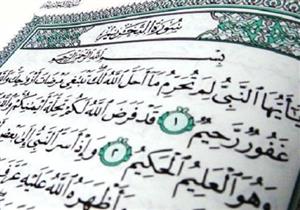 سورة التحريم
بسم الله الرحمن الرحيم
يَٰٓأَيُّهَا ٱلنَّبِيُّ لِمَ تُحَرِّمُ مَآ أَحَلَّ ٱللَّهُ لَكَ تَبْتَغِي مَرْضَاتَ
غَفُورٌ رَّحِيمٌ ١ قَدْ فَرَضَ ٱللَّهُ لَكُمْ تَحِلَّةَ أَيْمَٰنِكُمْ
وَهُوَ ٱلْعَلِيمُ ٱلْحَكِيمُ ٢ وَإِذْ أَسَرَّ ٱلنَّبِيُّ إِلَىٰ بَعْضِ
وَأَظْهَرَهُ ٱللَّهُ عَلَيْهِ عَرَّفَ